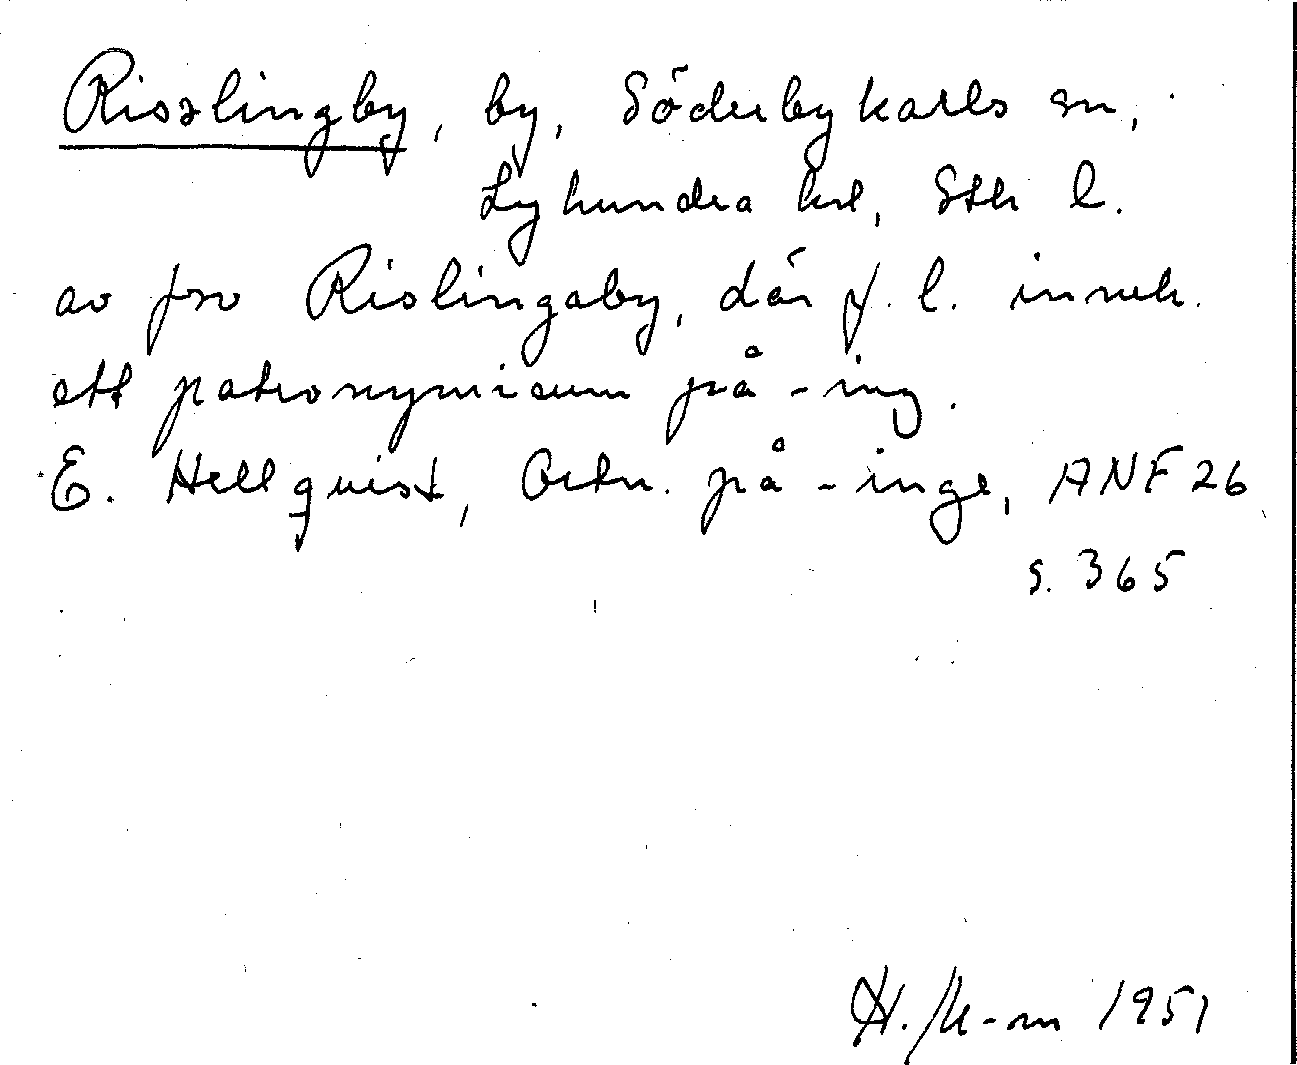 Risslingby, by, Söderbykarls sn,
Lyhundra hd, Sth l.
av fsv Rislingaby, där f. l. inneh.
ett patronymicum på -ing.
E. Hellquist, Ortn. på -inge, ANF 26
s. 365
H. M-m 1951